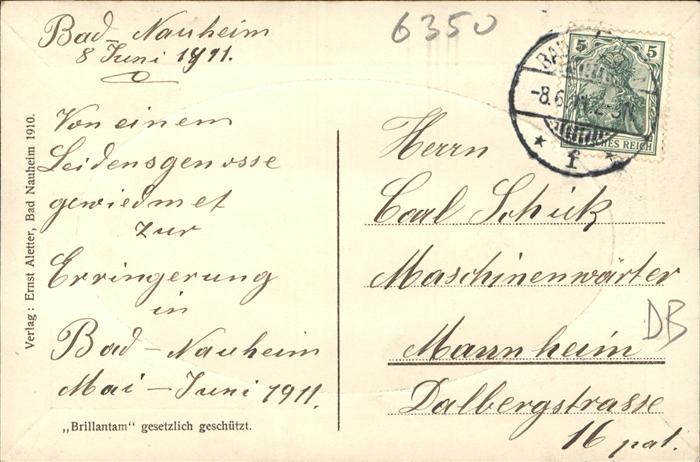 Bad-Nauheim
8 Juni 1911.
Von einem
Leidensgenosse
gewiedmet
zur
Erringerung
in
Bad-Nauheim
Mai-Juni 1911.
„Brillantam“ gesetzlich geschützt.
Verlag: Ernst Aletter, Bad Nauheim 1910.
6350
5 5
REICH
BAD
-8.6.
* f *
Herrn
Carl Schick
Maschinenwärter
Mannheim
Dalbergstrasse
16 pat.
DB